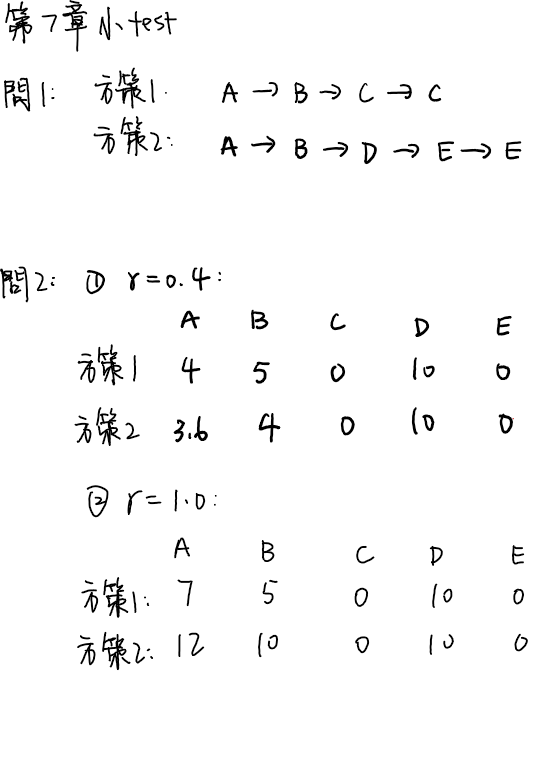 第7章 小test
問1: 方策1. A → B → C → C
方策2: A → B → D → E → E
問2: ① r=0.4:
A B C D E
方策1 4 5 0 10 0
方策2 3.6 4 0 10 0
② r=1.0:
A B C D E
方策1: 7 5 0 10 0
方策2: 12 10 0 10 0